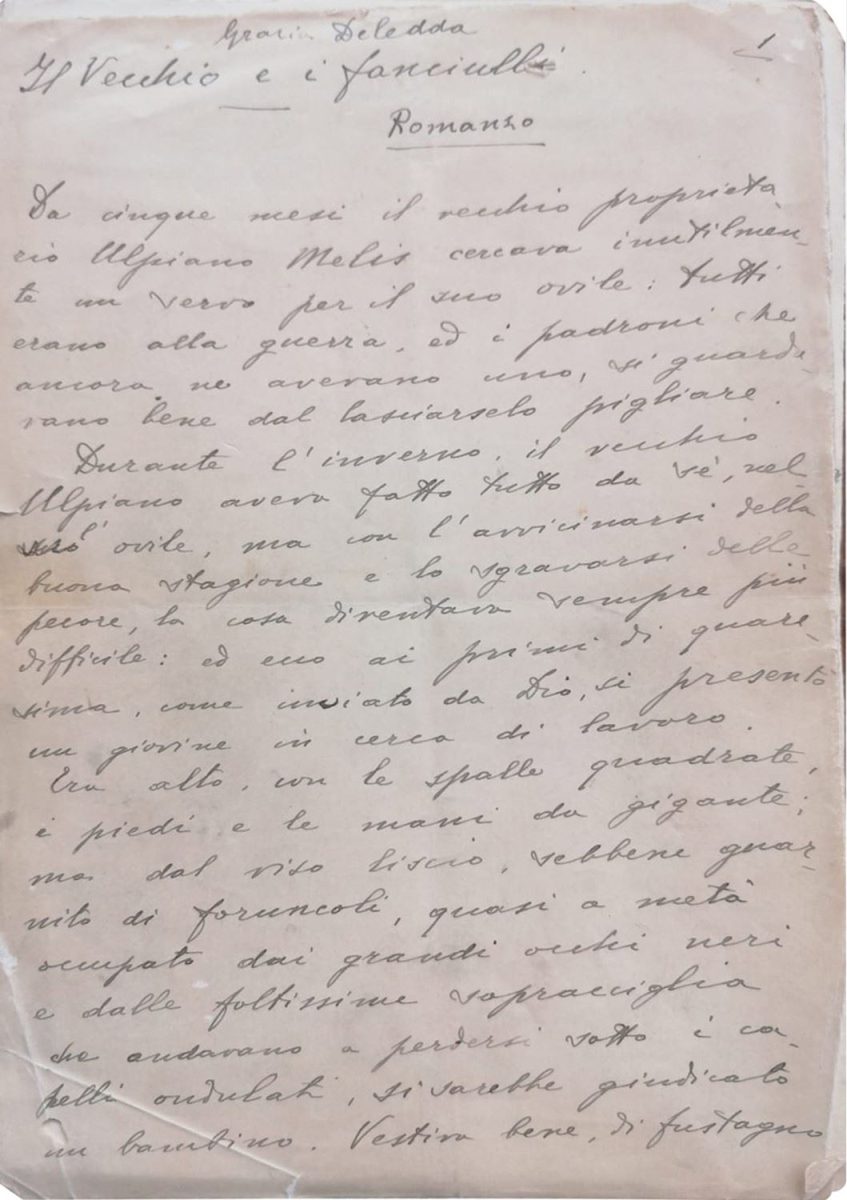 Grazia Deledda
1
Il Vecchio e i fanciulli.
Romanzo
Da cinque mesi il vecchio proprieta
rio Ulpiano Melis cercava inutilmen-
te un servo per il suo ovile: tutti
erano alla guerra, ed i padroni che
ancora ne avevano uno, si guarda-
vano bene dal lasciarselo pigliare.
Durante l'inverno, il vecchio
Ulpiano aveva fatto tutto da sé, nel-
l' ovile, ma con l'avvicinarsi della
buona stagione e lo sgravarsi delle
pecore, la cosa diventava sempre più
difficile: ed ecco ai primi di quare-
sima, come inviato da Dio, si presentò
un giovine in cerca di lavoro.
Era alto, con le spalle quadrate,
i piedi e le mani da gigante;
ma dal viso liscio, sebbene guar-
nito di foruncoli, quasi a metà
occupato dai grandi occhi neri
e dalle foltissime sopracciglia
che andavano a perdersi sotto i ca-
pelli ondulati, si sarebbe giudicato
un bambino. Vestiva bene, di fustagno